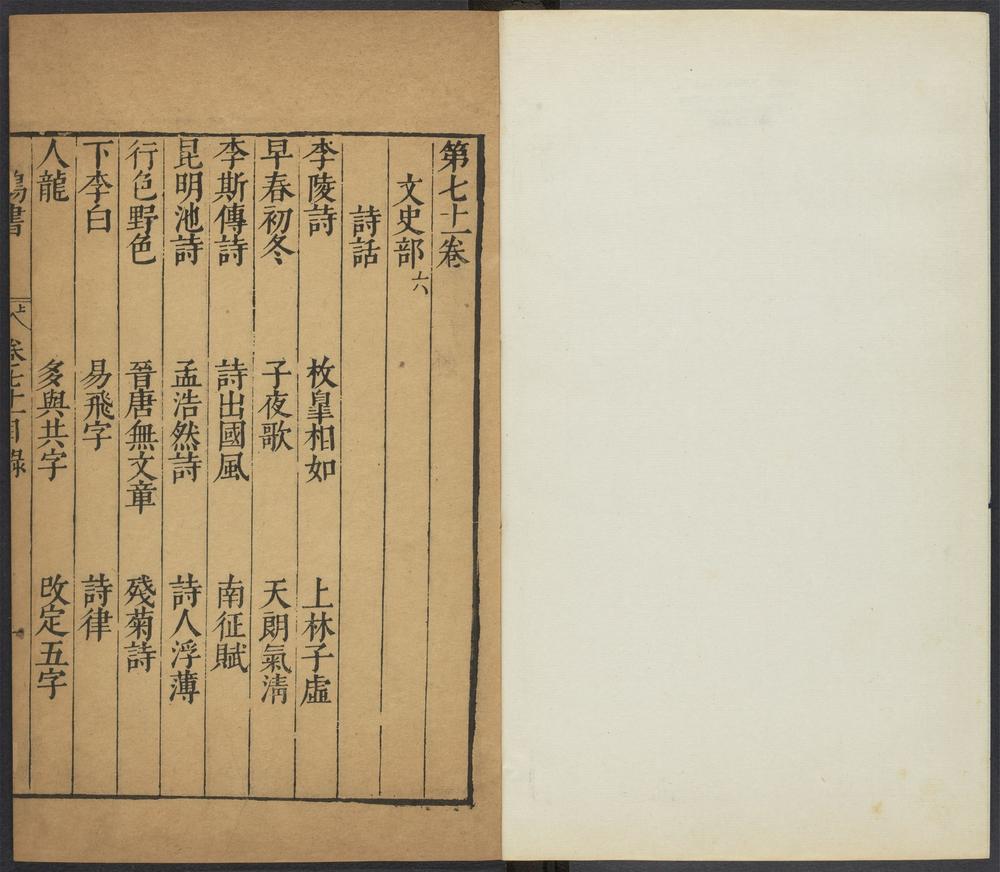 第七十一卷
文史部六
詩話
李陵詩　枚皐相如　上林子虛
早春初冬　子夜歌　天朗氣清
李斯傳詩　詩出國風　南征賦
昆明池詩　孟浩然詩　詩人浮薄
行色野色　晉唐無文章　殘菊詩
下李白　易飛字　詩律
人龍　多與共字　改定五字
鴻書　卷七十一目錄